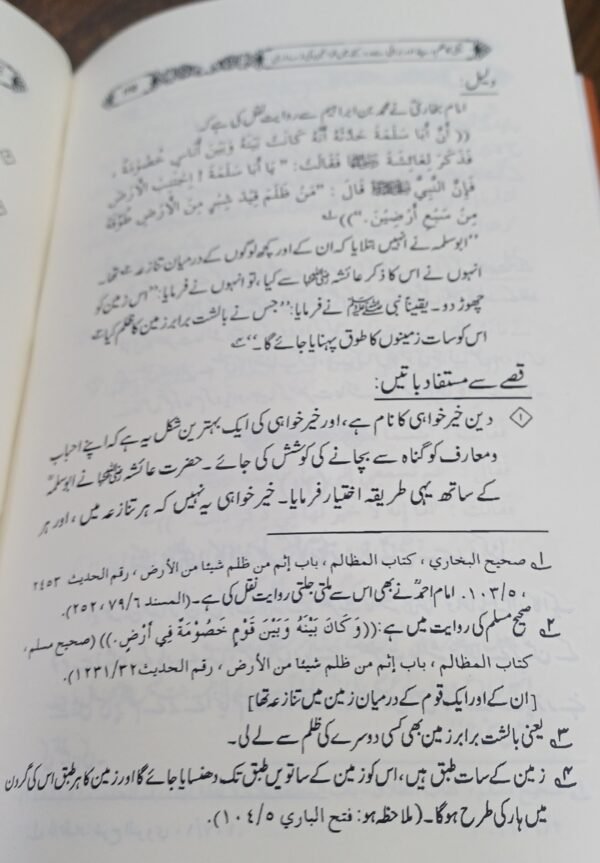 دلیل:
امام بخاریؒ نے محمد بن ابراہیم سے روایت نقل کی ہے کہ
(( أَنَّ أَبَا سَلَمَةَ حَدَّثَهُ أَنَّهُ كَانَتْ بَيْنَهُ وَبَيْنَ أُنَاسٍ خُصُومَةٌ ,
فَذَكَرَ لِعَائِشَةَ رضي الله عنها فَقَالَتْ: "يَا أَبَا سَلَمَةَ ! اجْتَنِبِ الْأَرْضَ
فَإِنَّ النَّبِيَّ ﷺ قَالَ : "مَنْ ظَلَمَ قِيْدَ شِبْرٍ مِنَ الْأَرْضِ طُوِّقَهُ
مِنْ سَبْعِ أَرَضِيْنَ.")) ۱
"ابوسلمہ نے انہیں بتلایا کہ ان کے اور کچھ لوگوں کے درمیان تنازعہ ۲ تھا۔
انہوں نے اس کا ذکر عائشہ رضی اللہ عنہا سے کیا، تو انہوں نے فرمایا: "اس زمین کو
چھوڑ دو۔ یقیناً نبی ﷺ نے فرمایا: "جس نے بالشت برابر زمین کا ظلم کیا ۳
اس کو سات زمینوں کا طوق پہنایا جائے گا۔" ۴
قصے سے مستفاد باتیں:
۱ دین خیر خواہی کا نام ہے، اور خیر خواہی کی ایک بہترین شکل یہ ہے کہ اپنے احباب
و معارف کو گناہ سے بچانے کی کوشش کی جائے۔ حضرت عائشہ رضی اللہ عنہا نے ابوسلمہؒ
کے ساتھ یہی طریقہ اختیار فرمایا۔ خیر خواہی یہ نہیں کہ ہر تنازعہ میں، اور ہر
۱ صحيح البخاري ، كتاب المظالم ، باب إثم من ظلم شيئا من الأرض ، رقم الحديث ۲٤٥۳
، ۱۰۳/٥. امام احمدؒ نے بھی اس سے ملتی جلتی روایت نقل کی ہے۔ (المسند ۷۹/٦ ، ۲٥۲).
۲ صحیح مسلم کی روایت میں ہے: ((وَ كَانَ بَيْنَهُ وَبَيْنَ قَوْمٍ خَصُوْمَةٌ فِي أَرْضٍ.)) (صحيح مسلم ،
كتاب المظالم ، باب إثم من ظلم شيئا من الأرض ، رقم الحديث ۱۲۳۱/۳۲).
[ان کے اور ایک قوم کے درمیان زمین میں تنازعہ تھا]
۳ یعنی بالشت برابر زمین بھی کسی دوسرے کی ظلم سے لے لی۔
۴ زمین کے سات طبق ہیں، اس کو زمین کے ساتویں طبق تک دھنسایا جائے گا اور زمین کا ہر طبق اس کی گردن
میں ہار کی طرح ہو گا۔ (ملاحظہ ہو: فتح الباري ۱۰٤/٥).